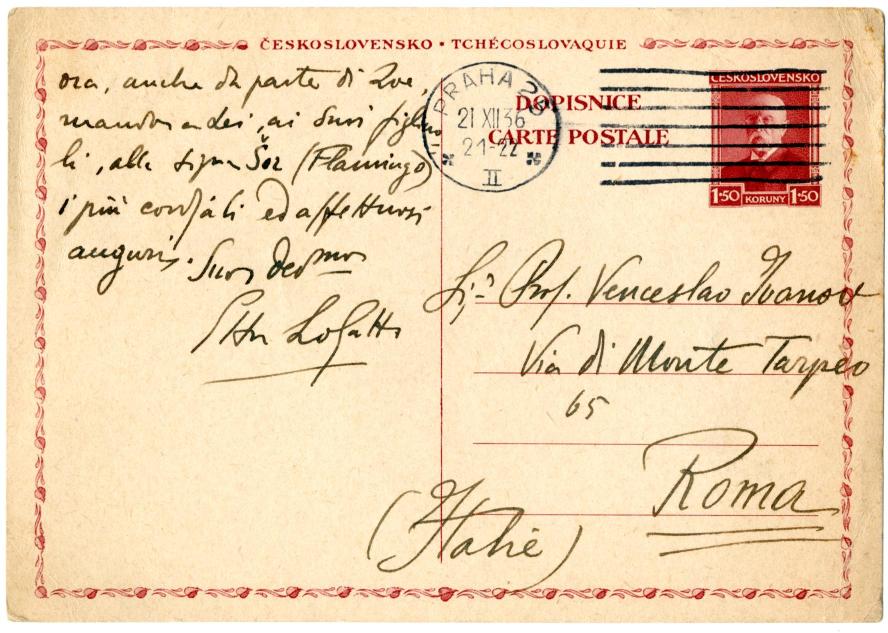 ČESKOSLOVENSKO • TCHÉCOSLOVAQUIE
ora, anche da parte di Zoe,
mando a Lei, ai Suoi figliuo
li, alla sig.ra Šor (Flamingo)
i più cordiali ed affettuosi
auguri. Suo devmo
Ettore Lo Gatto
PRAHA 25
21 XII 36
21-22
II
DOPISNICE
CARTE POSTALE
ČESKOSLOVENSKO
1·50 KORUNY 1·50
Prof. Venceslao Ivanov
Via di Monte Tarpeo
65
Roma
(Italie)